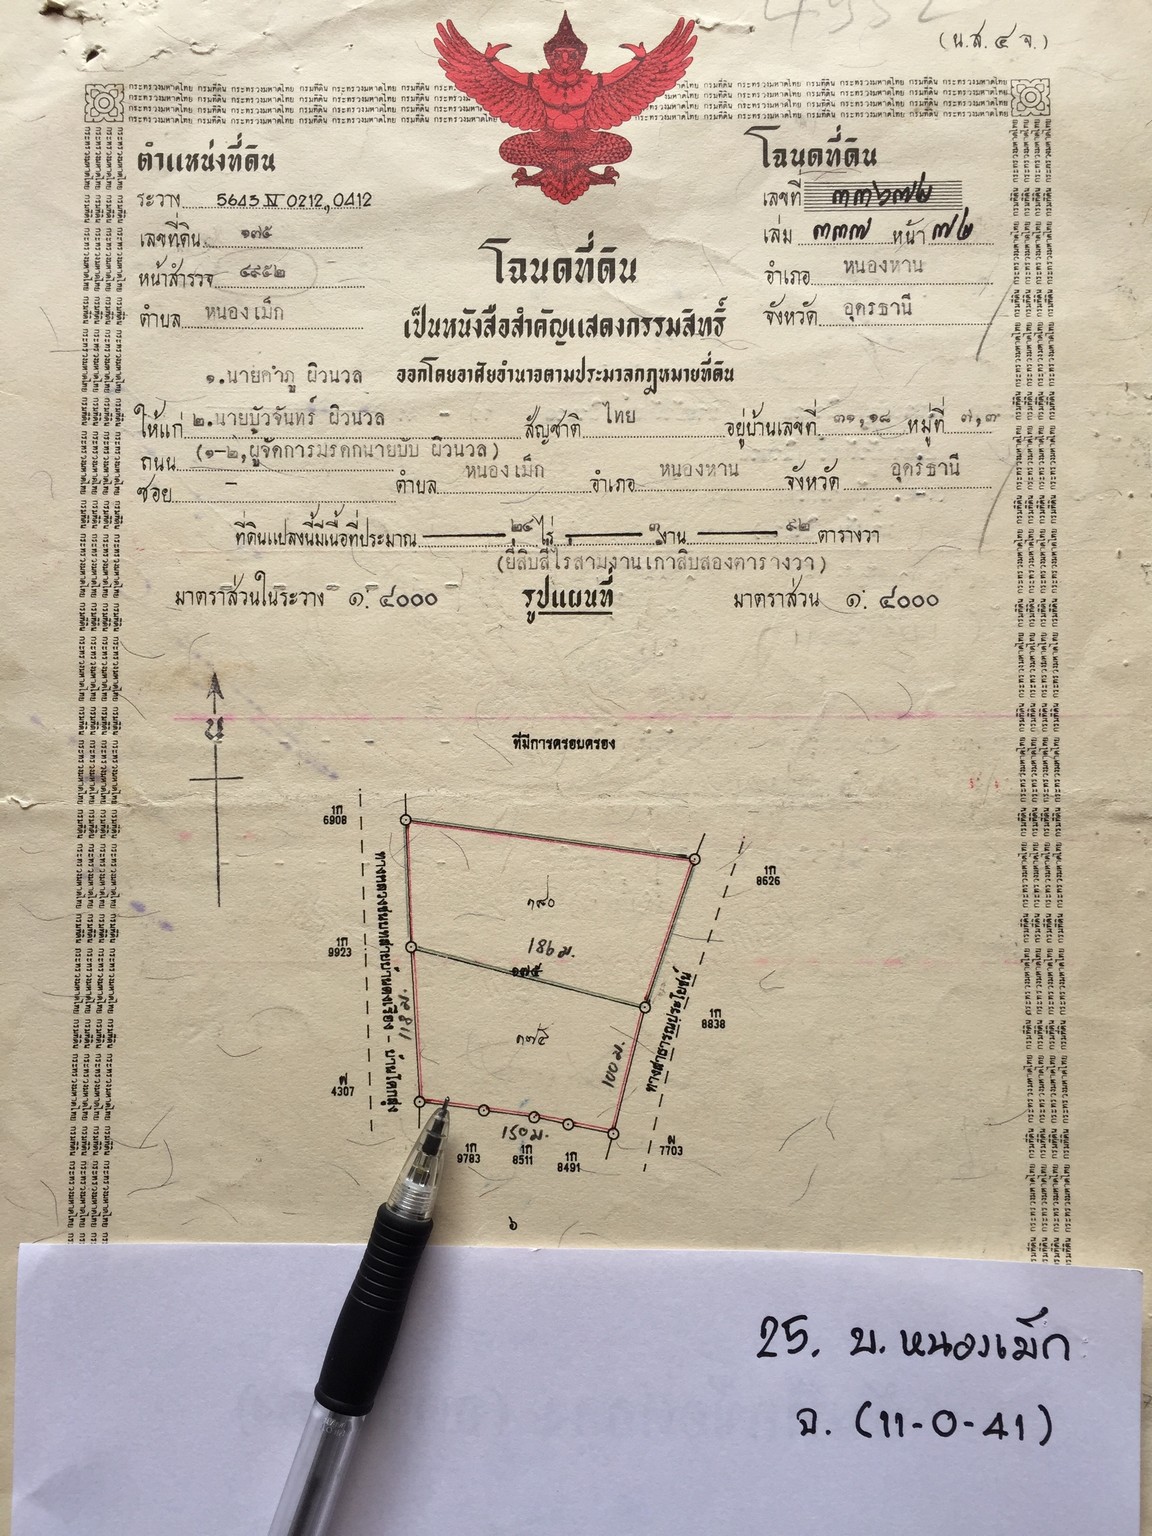 (น.ส.๔ จ.)
ตำแหน่งที่ดิน
ระวาง 5643 IV 0212,0412
เลขที่ดิน ๑๗๕
หน้าสำรวจ ๔๙๕๒
ตำบล หนองเม็ก
โฉนดที่ดิน
เลขที่ ๓๓๖๗๒
เล่ม ๓๓๗ หน้า ๗๒
อำเภอ หนองหาน
จังหวัด อุดรธานี
โฉนดที่ดิน
เป็นหนังสือสำคัญแสดงกรรมสิทธิ์
ออกโดยอาศัยอำนาจตามประมวลกฎหมายที่ดิน
๑.นายคำภู ผิวนวล
ให้แก่ ๒.นายบัวจันทร์ ผิวนวล สัญชาติ ไทย อยู่บ้านเลขที่ ๓๑,๑๘ หมู่ที่ ๗,๓
ถนน (๑-๒,ผู้จัดการมรดกนายบับ ผิวนวล)
ซอย - ตำบล หนองเม็ก อำเภอ หนองหาน จังหวัด อุดรธานี
ที่ดินแปลงนี้มีเนื้อที่ประมาณ ๒๔ ไร่ ๓ งาน ๙๒ ตารางวา
(ยี่สิบสี่ไร่สามงานเก้าสิบสองตารางวา)
มาตราส่วนในระวาง ๑: ๔๐๐๐ รูปแผนที่ มาตราส่วน ๑: ๔๐๐๐
น
ที่มีการครอบครอง
1ก
6908
1ก
8626
๑๘๐
1ก
9923
186 ม.
๑๗๕
ทางหลวงชนบทสายบ้านดงเรือง - บ้านโคกสูง
118 ม.
ทางสาธารณประโยชน์
1ก
8838
๑๗๕
100 ม.
ฬ
4307
150 ม.
1ก
9783
1ก
8511
1ก
8491
ผ
7703
๖
25. บ.หนองเม็ก
จ. (11-0-41)